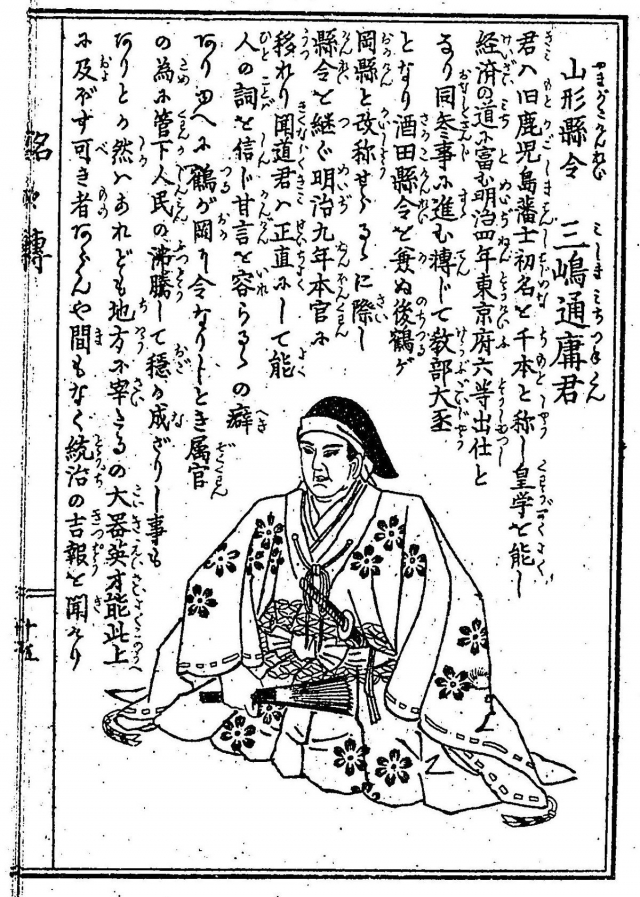 山形縣令　三嶋通庸君
君ハ旧鹿児島藩士初名を千本と称し皇学を能し
経済の道に富む明治四年東京府六等出仕と
なり同参事に進む轉じて教部大丞
となり酒田縣令を兼ぬ後鶴が
岡縣と改称せらるゝに際し
縣令を継ぐ明治九年本官に
移れり聞道君ハ正直にして能
人の詞を信じ甘言を容らるゝの癖
あり ゆへに鶴が岡に令なりしとき属官
の為に管下人民の沸騰して穏か成ざりし事も
ありとか然ハあれども地方に宰たるの大器英才能此上
に及ぶ可き者あらんや間もなく統治の吉報を聞えり